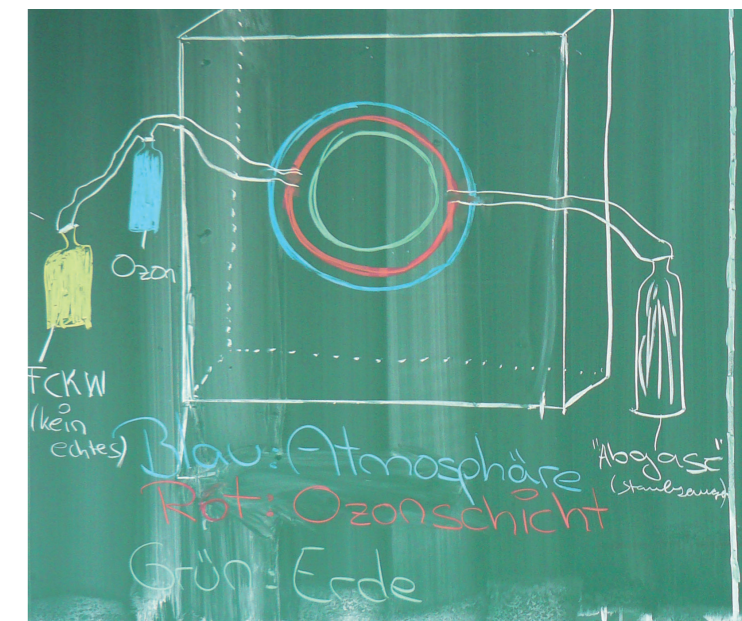 Ozon
FCKW
(kein
echtes)
"Abgase"
(Staubsauger)
Blau: Atmosphäre
Rot: Ozonschicht
Grün: Erde